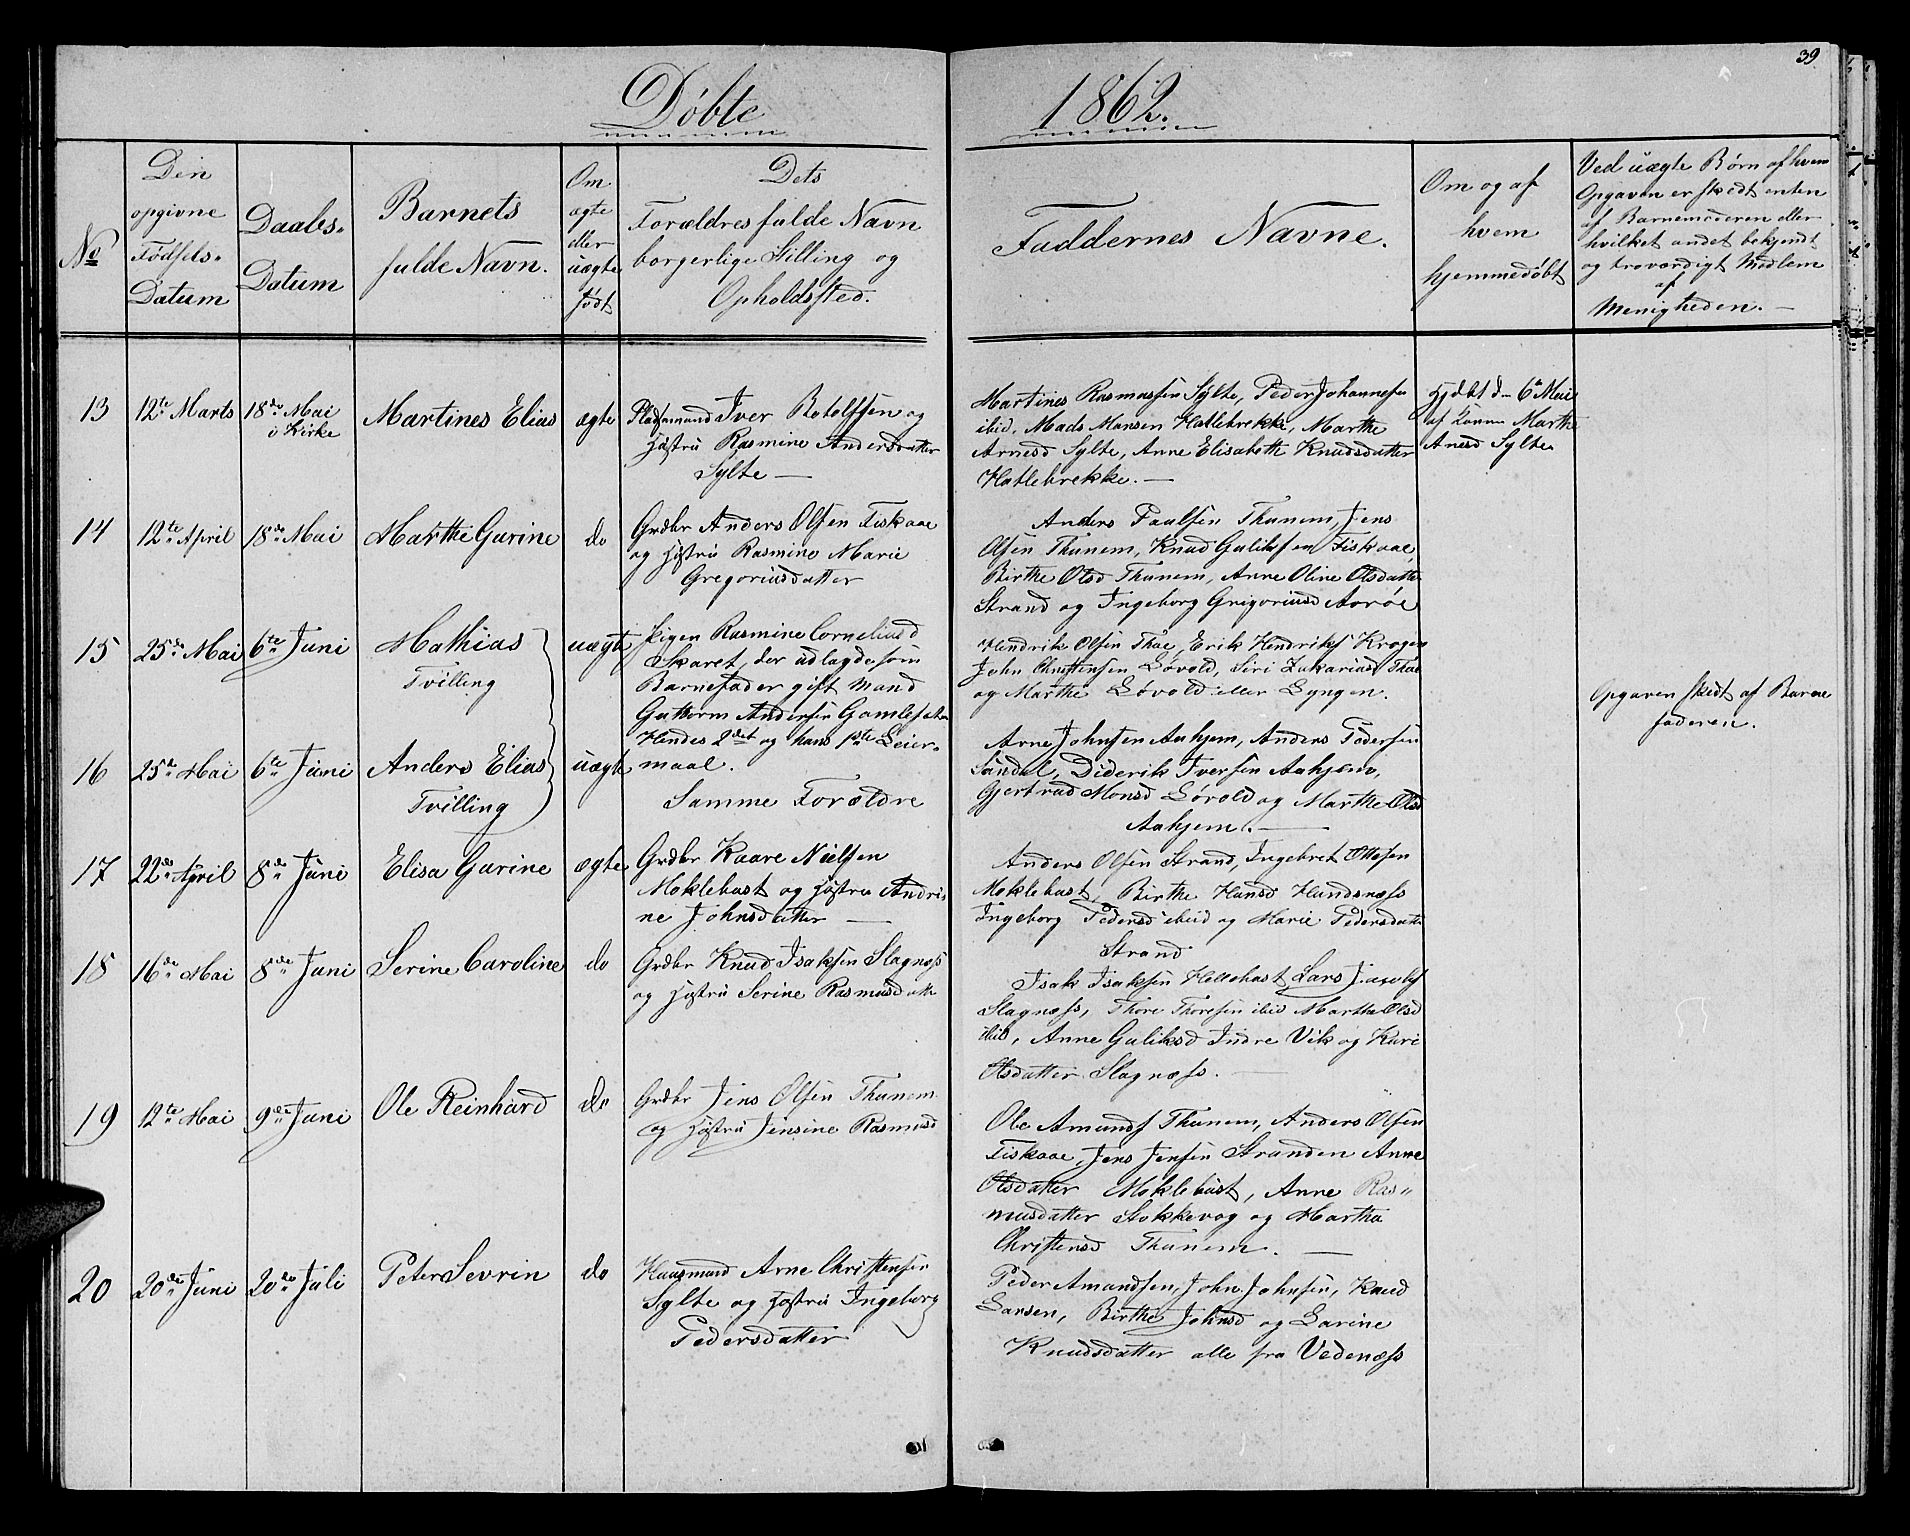 39
Døbte 1862.
No
Den opgivne Fødsels-Datum
Daabs-Datum
Barnets fulde Navn.
Om ægte eller uægte født
Dets Forældres fulde Navn borgerlige Stilling og Opholdssted.
Faddernes Navne.
Om og af hvem hjemmedøbt
Ved uægte Børn af hvem Opgaven er skedt enten af Barnemoderen eller hvilket andet bekjendt og troværdigt Medlem af Menigheden. —
13 12te Marts 18de Mai i Kirke Martines Elias ægte
Pladsmand Iver Botolfsen og
Hustru Rasmine Andersdatter
Sylte —
Martines Rasmussen Sylte, Peder Johannesen
ibid, Mads Monsen Hatlebrekke, Marthe
Arnesd Sylte, Anne Elisabeth Knudsdatter
Hatlebrekke. —
Hjdbt d– 6te Mai
af Marthe
Anesd Sylte
14 12te April 18de Mai Marthe Gurine do
Grdbr Anders Olsen Fiskaae
og Hustru Rasmine Marie
Gregoriusdatter
Anders Paulsen Thunem, Jens
Olsen Thunem, Knud Guliksen Fiskaae,
Birthe Olsd Thunem, Anne Oline Olsdatter
Strand og Ingeborg Grigoriusd Aarøe
15 25de Mai 6te Juni Mathias Tvilling uægte
Pigen Rasmine Corneliusd
Skaret, der udlagde som
Barnefader gift Mand
Guttorm Andersen
Hendes 2det og hans 1ste Leier-
maal.
Hendrik Olsen Thue, Erik Hendriks Krogen
John Christensen Løvold, Siri Zakariasd Thue
og Marthe Løvold eller Lyngen.
Opgaven skedt af Barne
faderen.
16 25de Mai 6te Juni Anders Elias Tvilling uægte
Samme Forældre
Arne Johnsen Aahjem, Anders Pedersen
Sandal, Diderik Iversen Aahjem,
Gjertrud Monsd Løvold og Marthe Olsd
Aahjem. —
17 22de April 8de Juni Elisa Gurine ægte
Grdbr Kaare Nielsen
Moklebust og Hustru Andri-
ne Johnsdatter —
Anders Olsen Strand, Ingebret Ottosen
Moklebust, Birthe Hansd Hundsnæss
Ingeborg Pedersd ibid og Marie Pedersdatter
Strand
18 16de Mai 8de Juni Serine Caroline do
Grdbr Knud Isaksen Slagnæss
og Hustru Serine Rasmusdatter
Isak Isaksen Hellebust, Lars Jacobs
Slagnæss, Thore Thoresen ibid Martha Olsd
ibid, Anne Guliksd Indre Vik og Kari
Olsdatter Slagnæss. —
19 12te Mai 9de Juni Ole Reinhard do
Grdbr Jens Olsen Thunem
og Hustru Jensine Rasmusd
Ole Amunds Thunem, Anders Olsen
Fiskaae, Jens Jensen Stranden Anne
Olsdatter Moklebust, Anne Ras-
musdatter Stokkevog og Martha
Christensd Thunem. —
20 20de Juni 20de Juli Peter Sevrin do
Huusmand Arne Christensen
Sylte og Hustru Ingeborg
Pedersdatter
Peder Amandsen, John Johnsen, Knud
Larsen, Birthe Johnsd og Larine
Knudsdatter alle fra Vedenæss